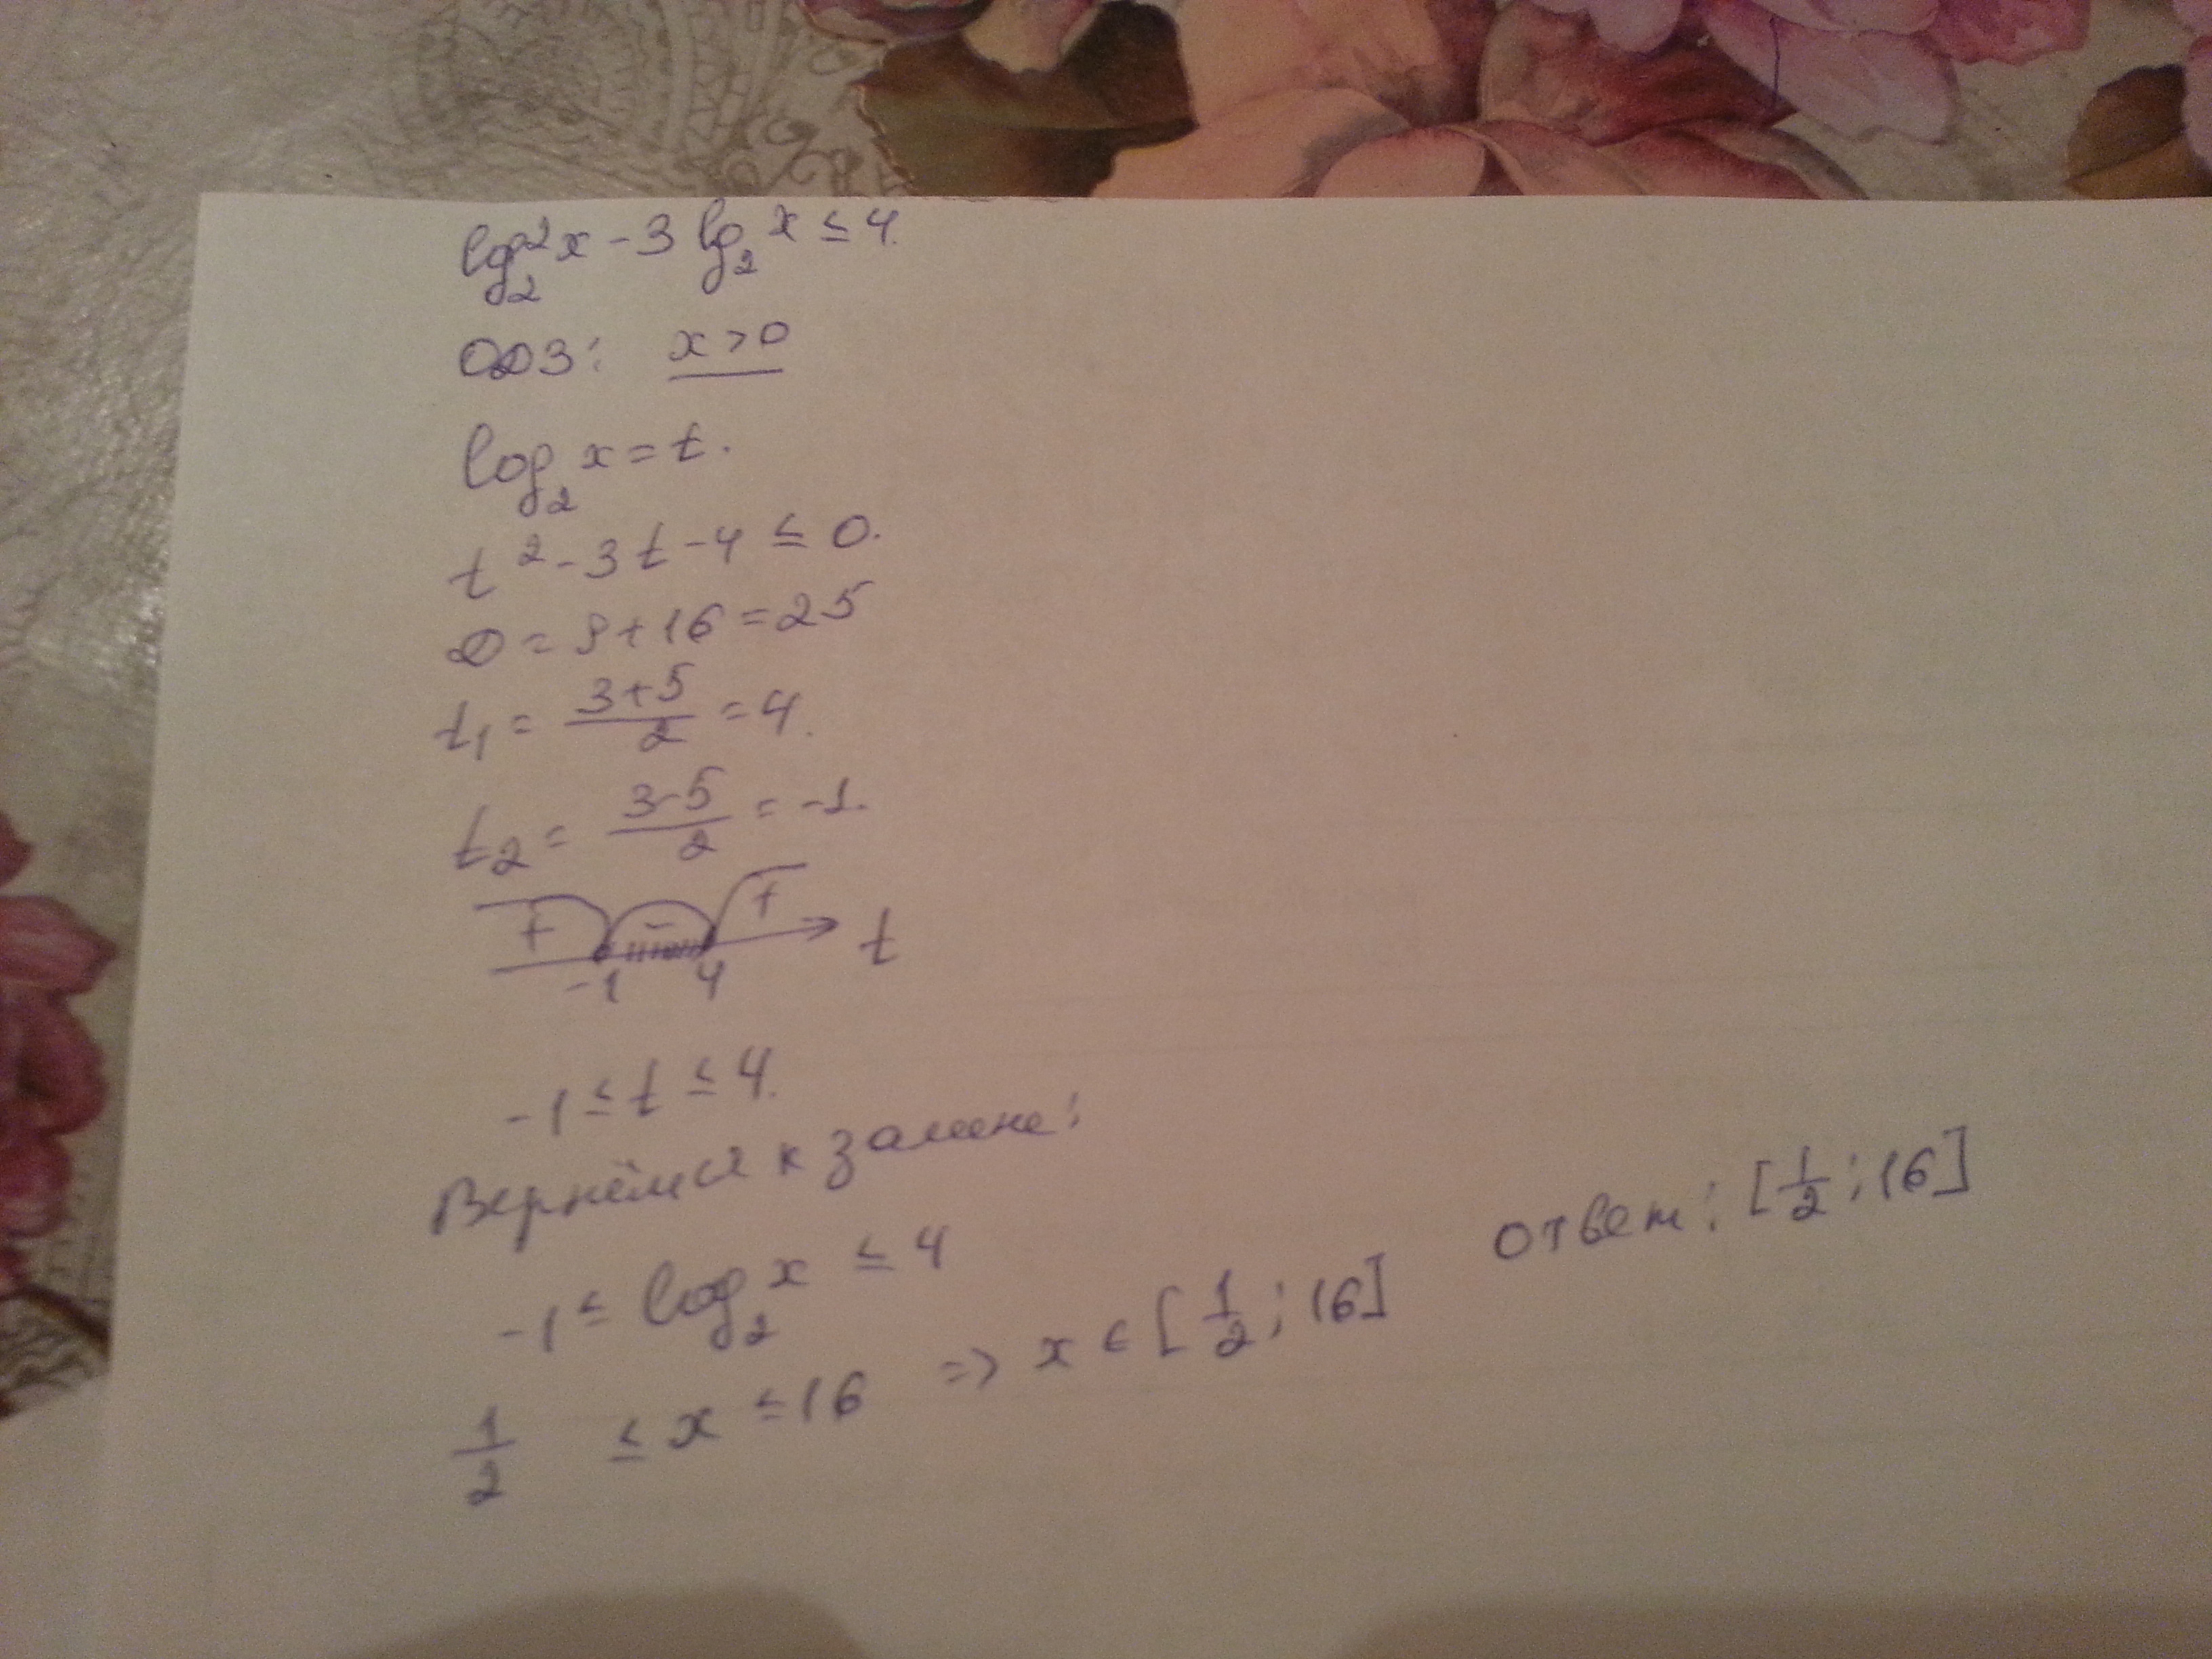 log₂²x - 3 log₂x ≤ 4.
ОДЗ: x > 0
log₂x = t.
t² - 3t - 4 ≤ 0.
D = 9 + 16 = 25
t₁ = (3+5)/2 = 4.
t₂ = (3-5)/2 = -1.
+ - +
-1 4 t
-1 ≤ t ≤ 4.
Вернёмся к замене:
-1 ≤ log₂x ≤ 4
1/2 ≤ x ≤ 16 => x ∈ [1/2; 16]
ответ: [1/2; 16]